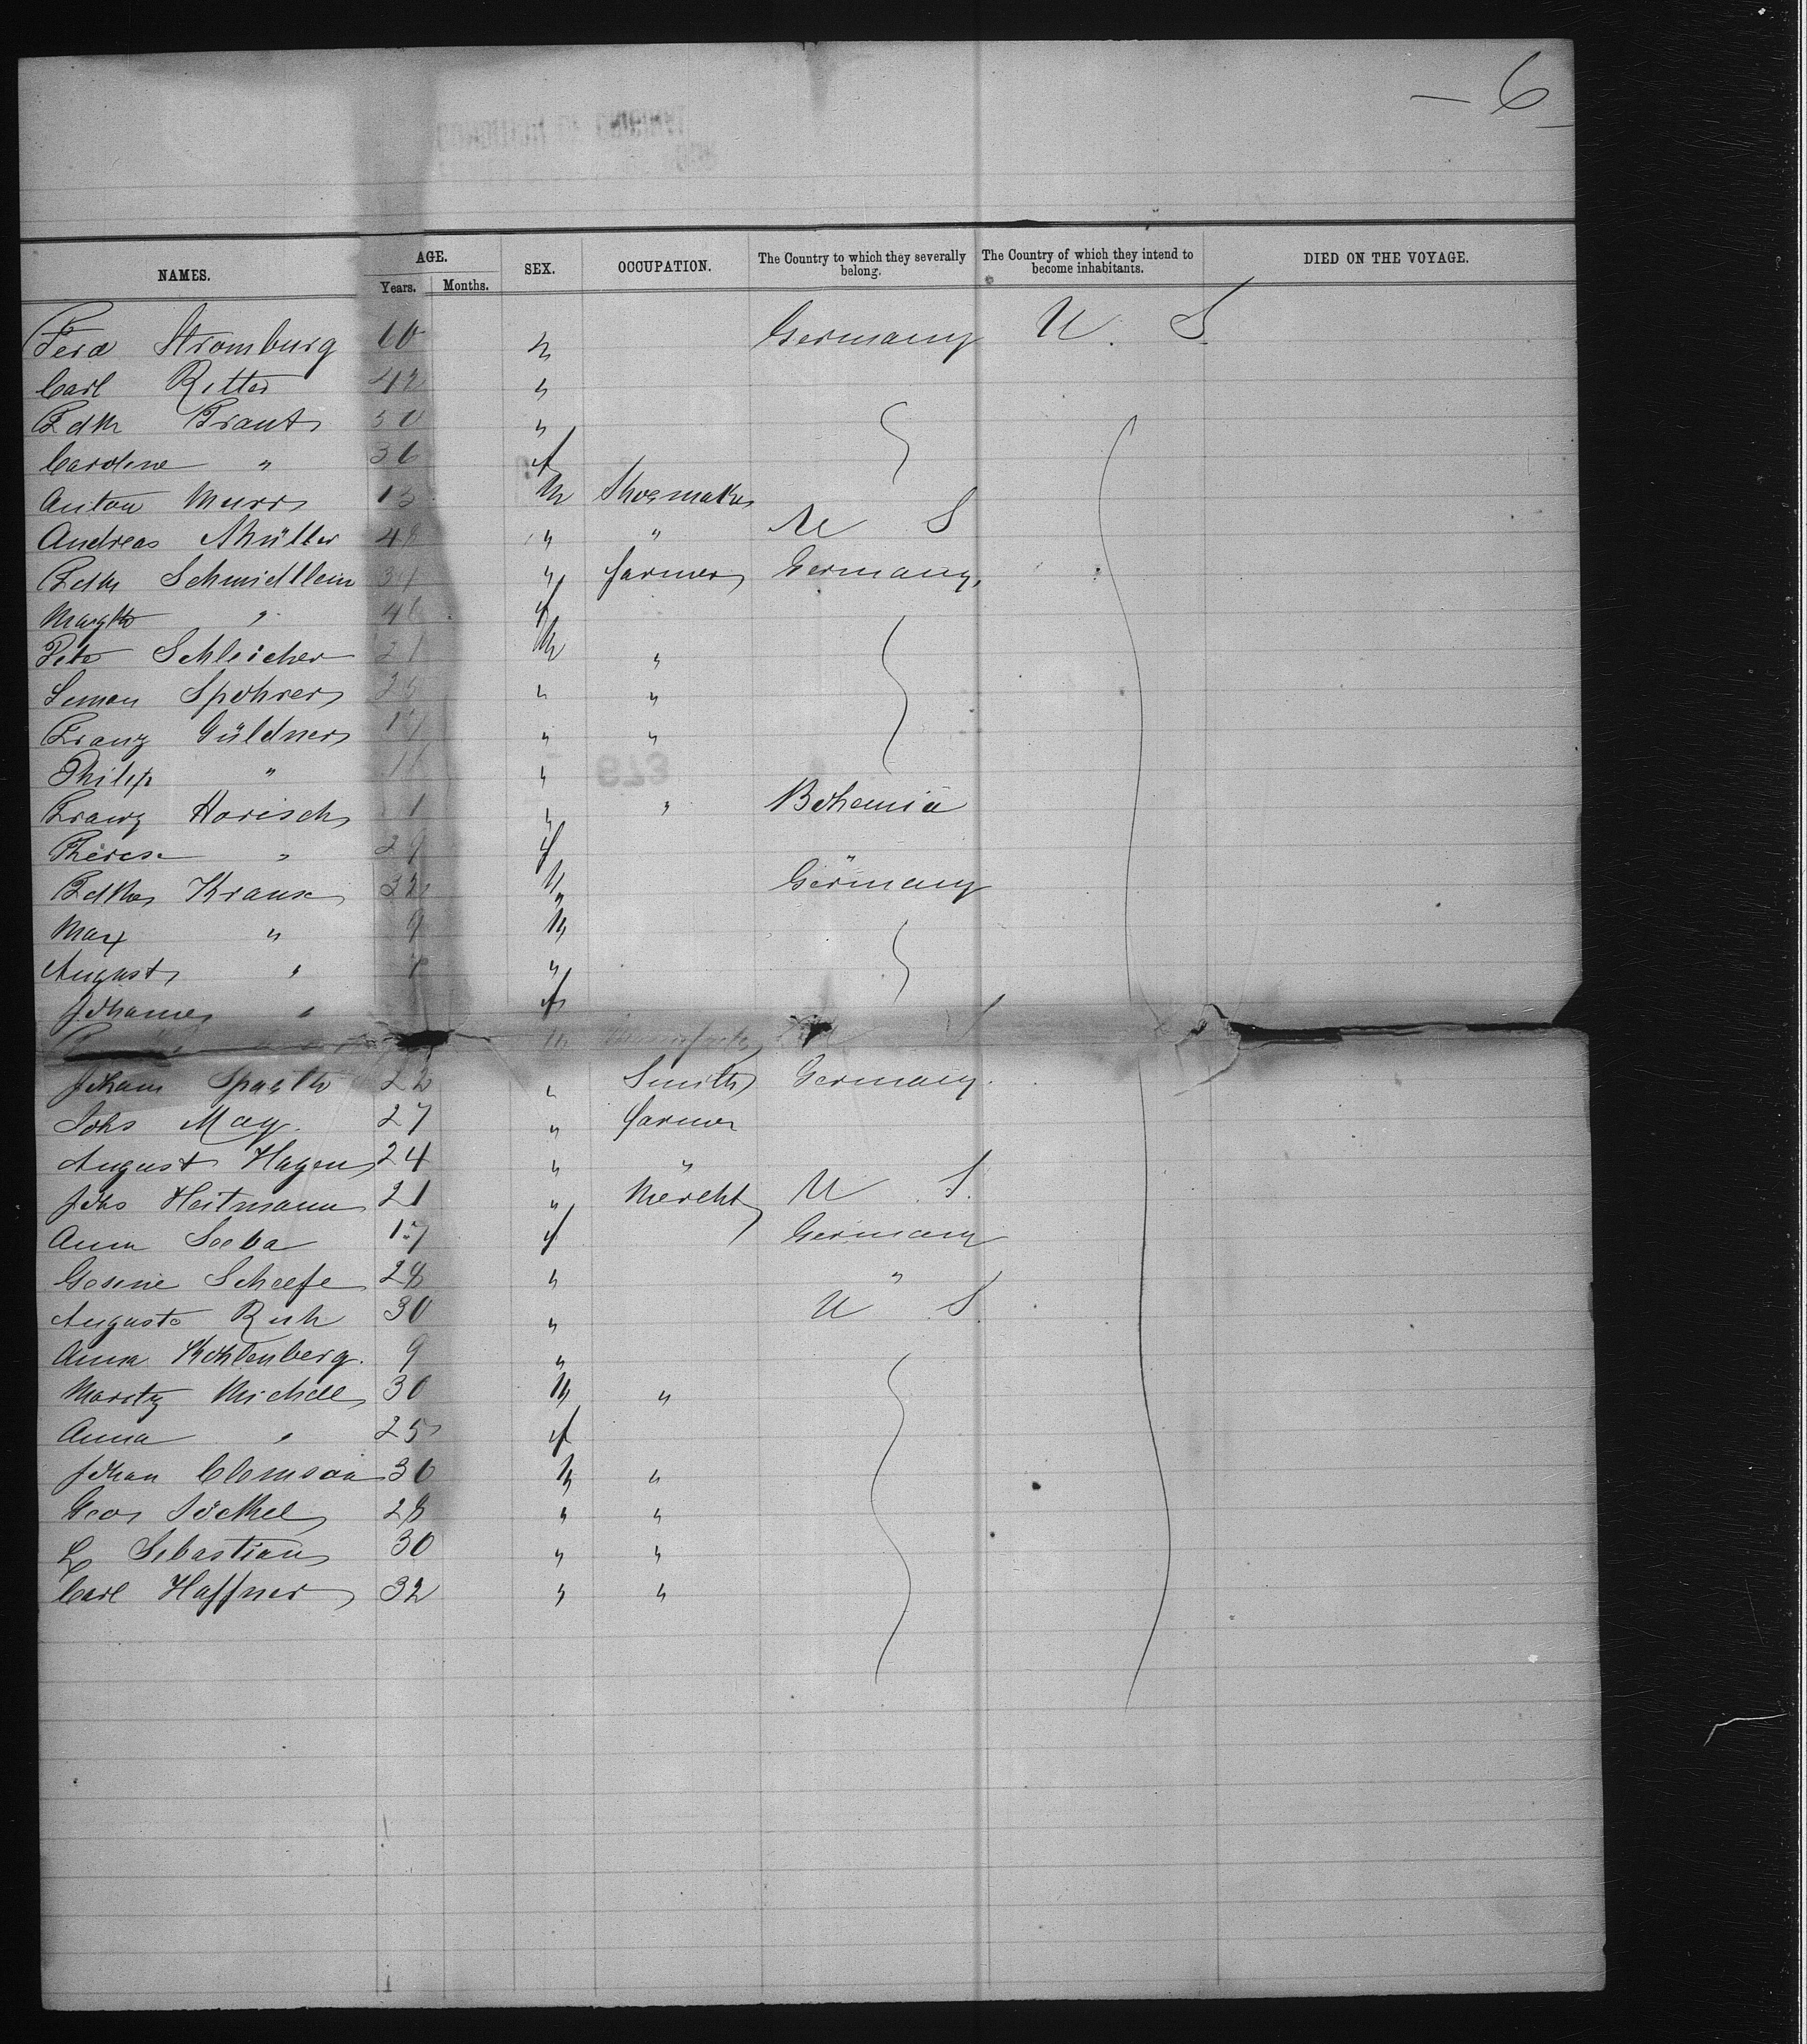 – 6 –
NAMES. AGE. Years. Months. SEX. OCCUPATION. The Country to which they severally belong. The Country of which they intend to become inhabitants. DIED ON THE VOYAGE.
Ferd Stromburg 60 m Germany U. S.
Carl Ritter 42 "
Fdk "
Caroline " 36 f
Anton 13 m Shoemaker
Andreas Müller 48 " " U S
Fdk Schmidtlein " farmer Germany.
" 46 f
Peter Schleicher 21 m "
Simon Spohrer " "
Franz Güldner 17 " "
Philip " "
Franz Horisch " " Bohemia
Therese " 29 f "
Krause 32 Germany
Max " 9 m
August " "
" f
m
Johann Spaeth 22 " Smith Germany.
Johs May. 27 " farmer
August Hagen 24 " "
Johs Heitmann 21 " Mercht U S.
Anna Seeba 17 f Germany
Gesine Scheefe 28 " "
Auguste Ruh 30 " U S
Anna Kohlenberg. 9 "
Moritz Michel 30 m "
Anna " 25 f
Johan 30 m "
Geo 28 " "
L Sebastian 30 " "
Carl Haffner 32 " "